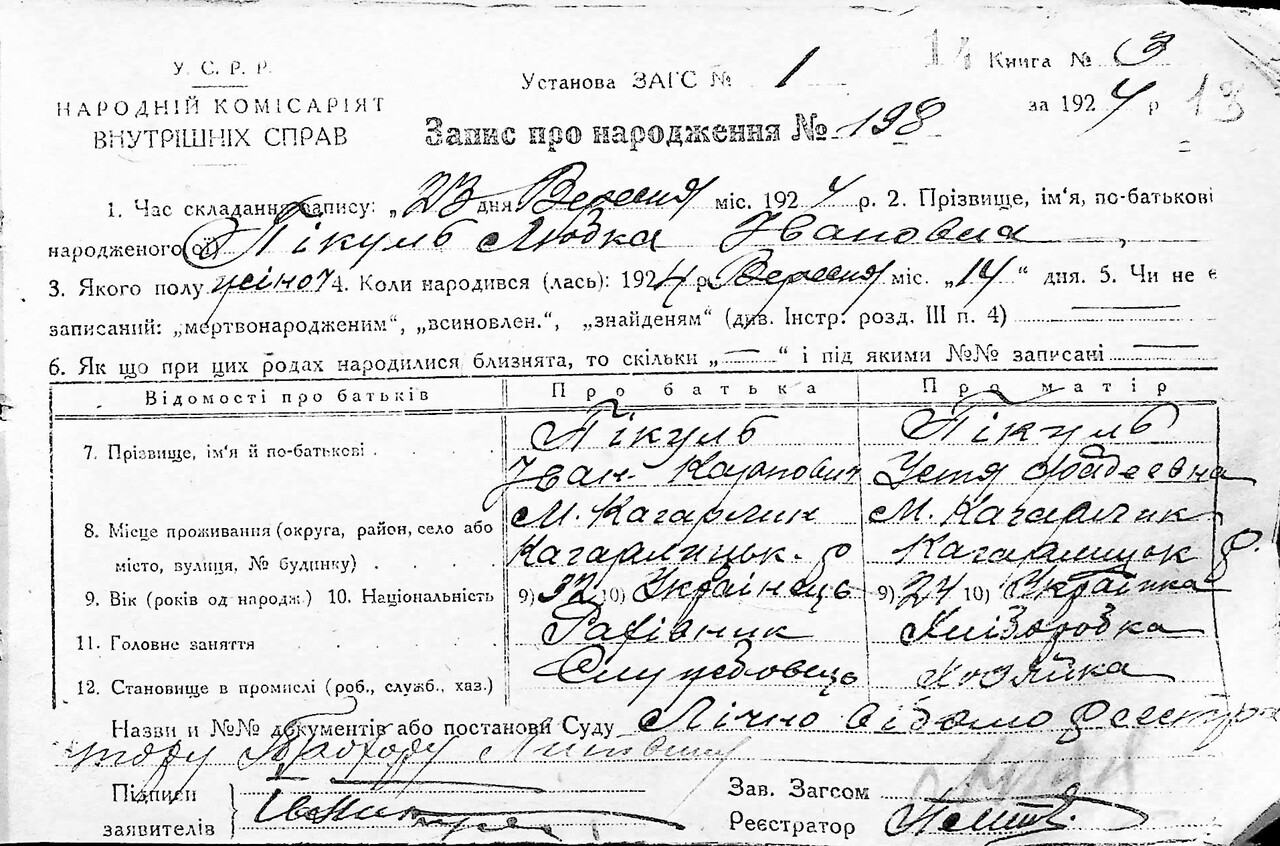 У. С. Р. Р.
НАРОДНІЙ КОМІСАРІЯТ
ВНУТРІШНІХ СПРАВ
Установа ЗАГС № 1
14 Книга № 3
за 1924 р 13
Запис про народження № 198
1. Час складання запису: „23 дня Вересня міс. 1924 р. 2. Прізвище, ім'я, по-батькові
народженого (ої) Пікуль Любка Івановна,
3. Якого полу жіноч 4. Коли народився (лась): 1924 р Вересня міс. „14“ дня. 5. Чи не є
записаний: „мертвонародженим“, „всиновлен.“, „знайденям“ (див. Інстр. розд. III п. 4)
6. Як що при цих родах народилися близнята, то скільки „—“ і під якими №№ записані —
Відомості про батьків Про батька Про матір
7. Прізвище, ім'я й по-батькові Пікуль Пікуль
Іван Карпович Устя Фадеевна
8. Місце проживання (округа, район, село або М. Кагарлик М. Кагарлик
місто, вулиця, № будинку) Кагарлицьк. р Кагарлицьк р.
9. Вік (років од народж.) 10. Національність 9) 32 10) Українець 9) 24 10) Українка
11. Головне заняття Рахівник Хліборобка
12. Становище в промислі (роб., служб., хаз.) Службовець Хозяйка
Назви и №№ документів або постанови Суду Лічно відомо реестра
тору
Підписи
заявителів
Зав. Загсом
Реєстратор